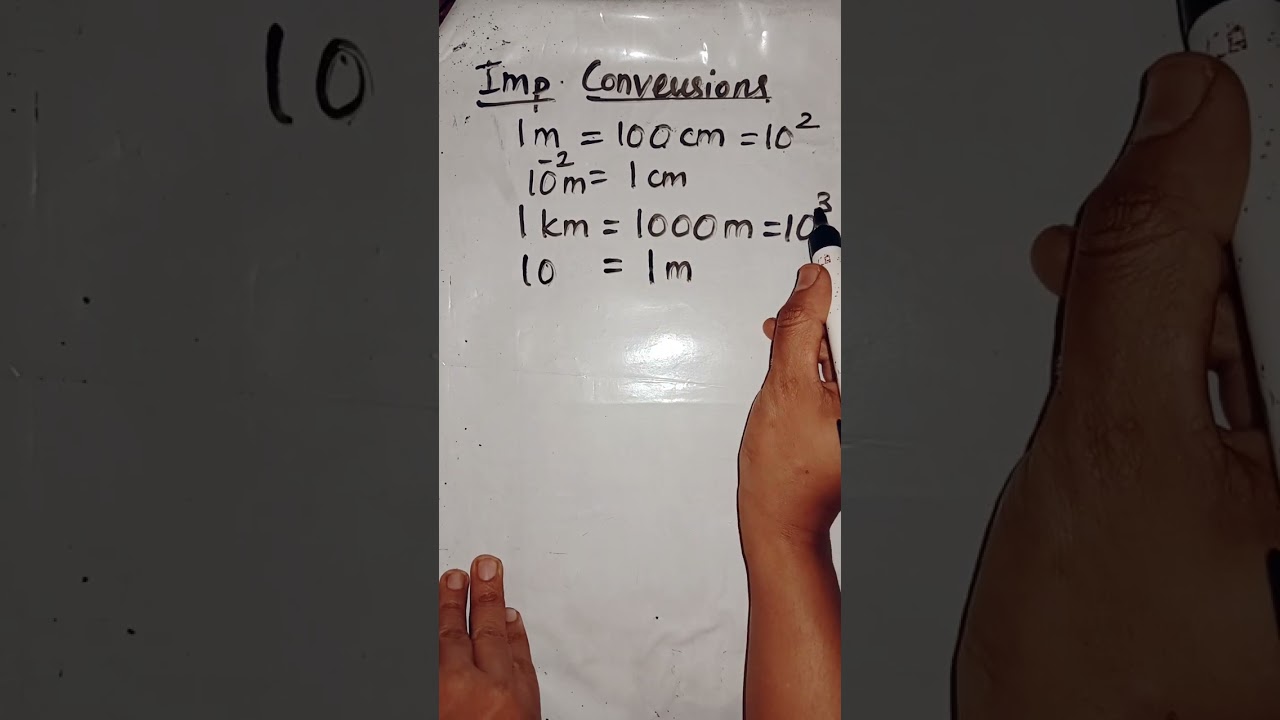 Imp. Conversions
1m = 100cm = 10²
10⁻²m = 1cm
1 km = 1000m = 10³
10 = 1m
10